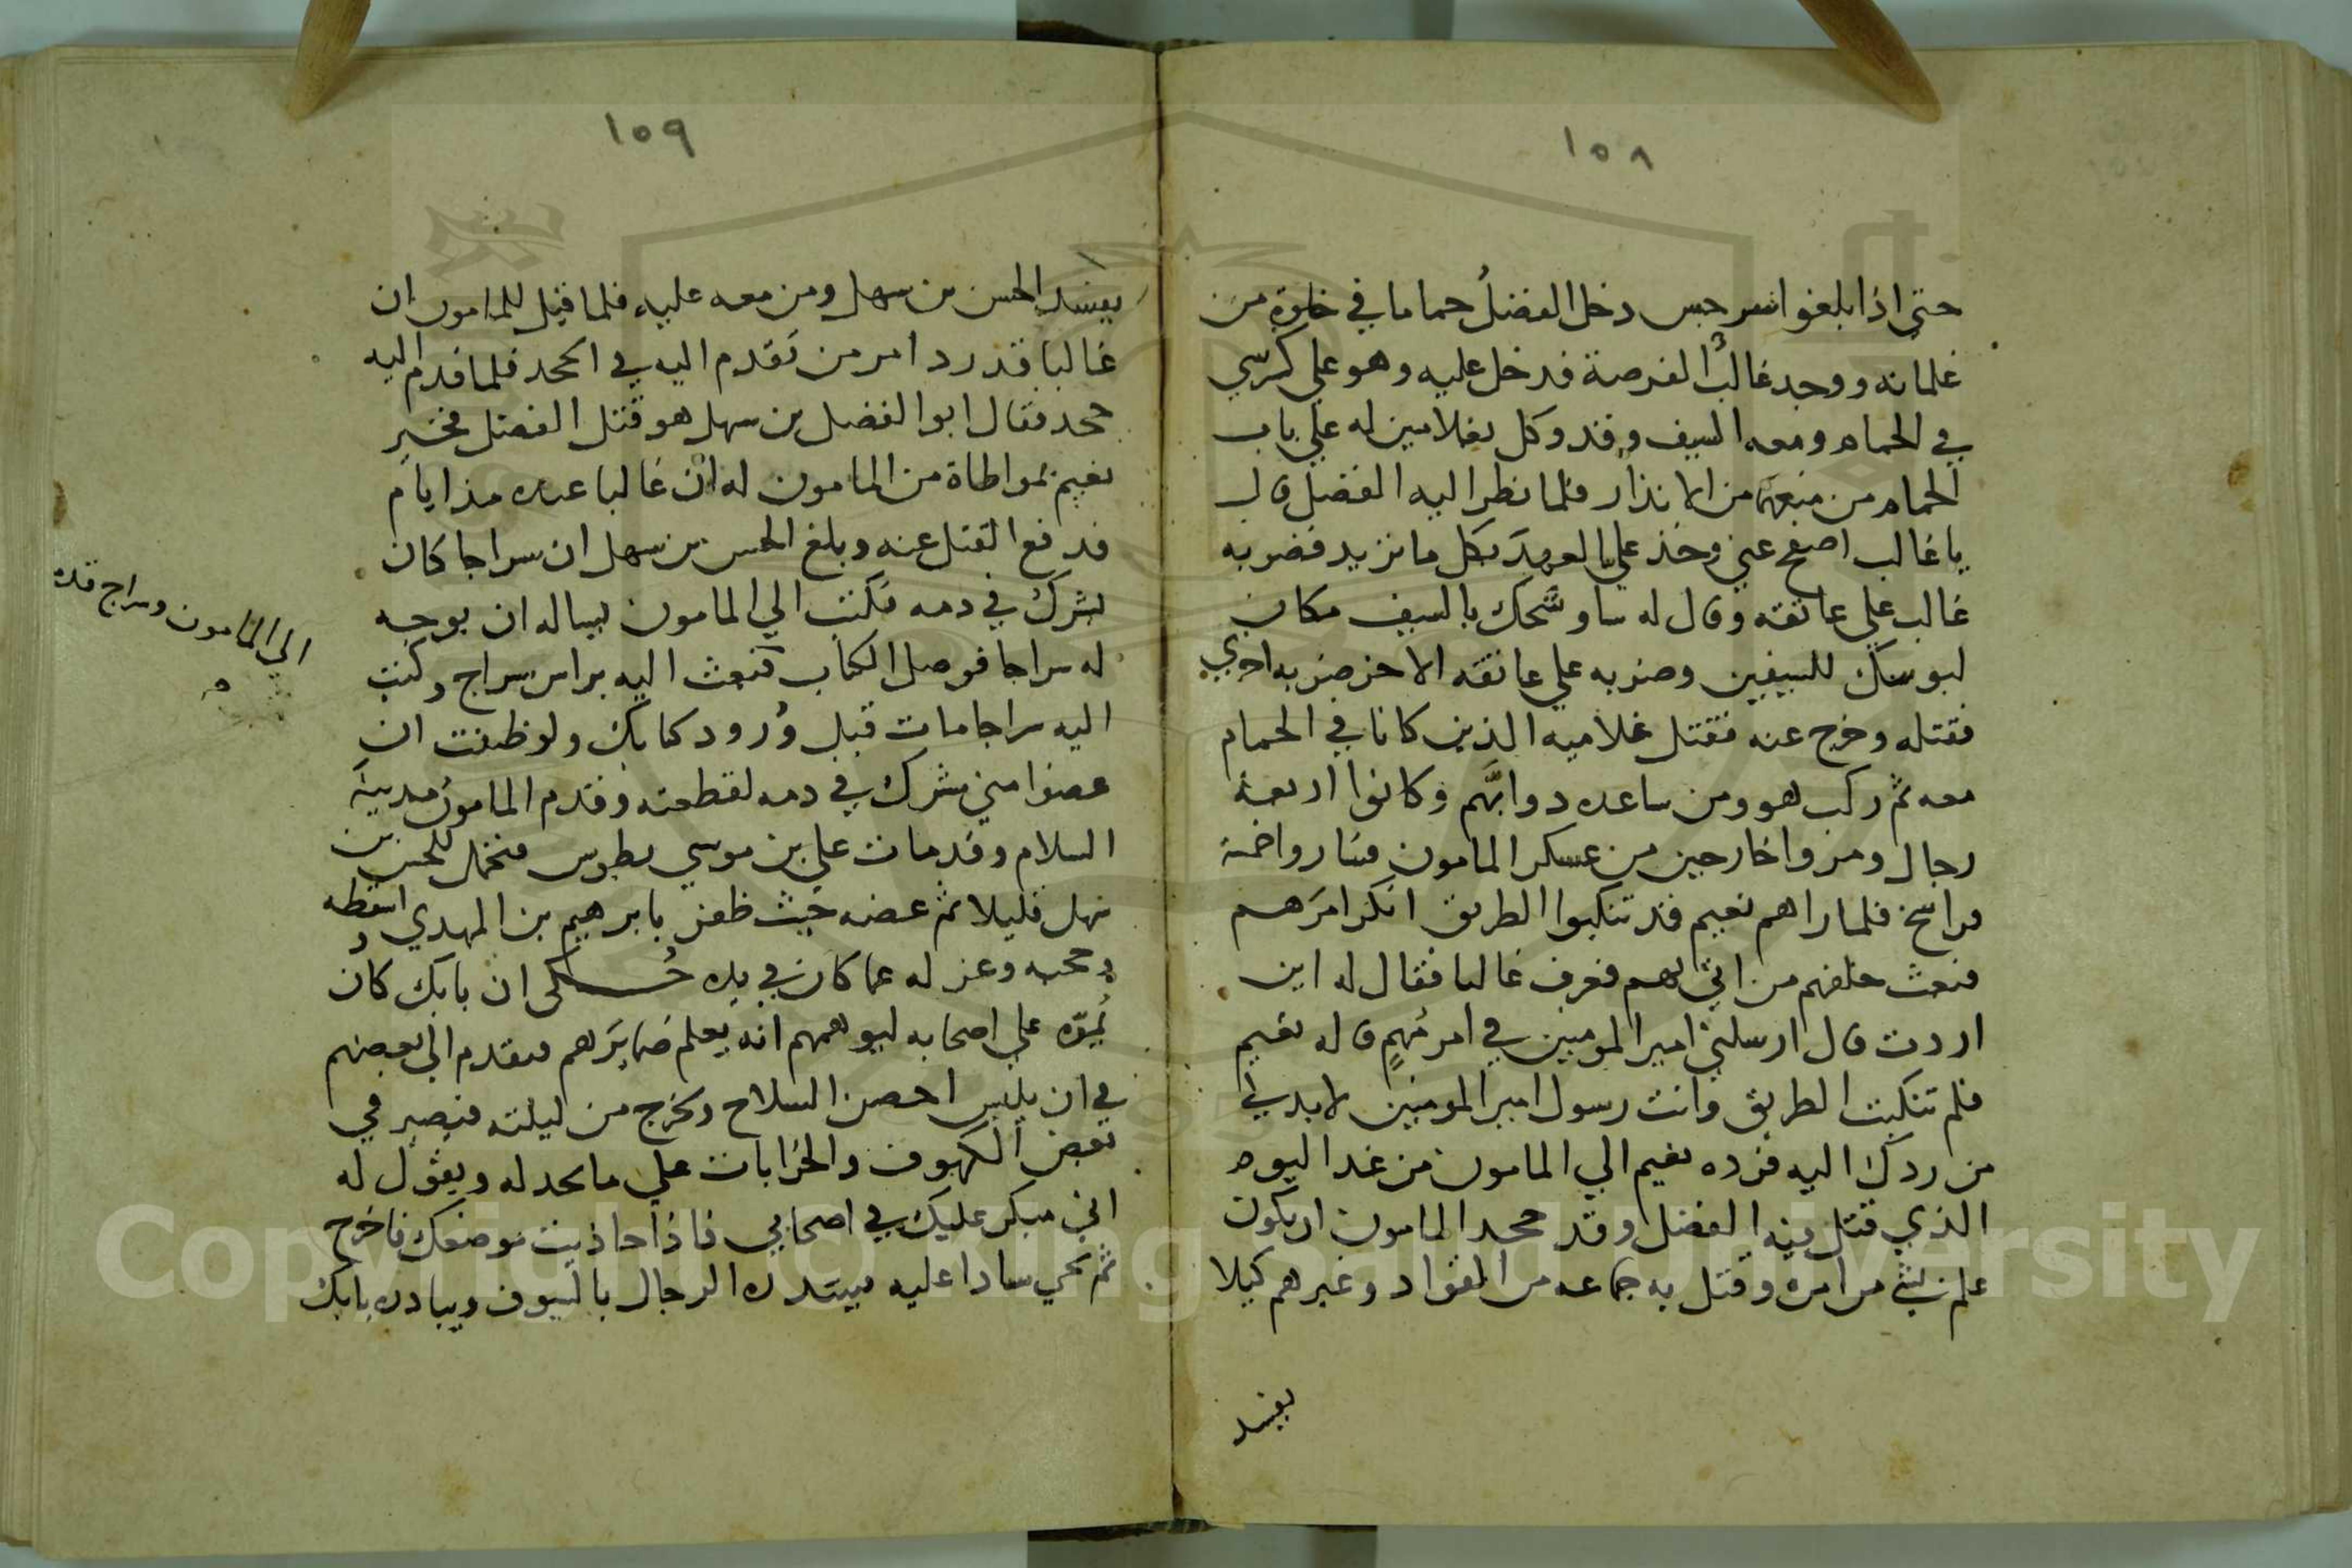 ١٥٨
حتى اذا بلغوا سرخس دخل الفضلُ حماما في خلوة من
غلمانه ووجد غالبٌ الفرصة فدخل عليه وهو علي كرسي
في الحمام ومعه السيف وقد وكل بغلامين له علي باب
الحمام من منعهم من الانذار فلما نظر اليه الفضل قال
يا غالب اصفح عني وخذ علي العهد بكل ما تريد فضربه
غالب علي عاتقه وقال له ساوشحك بالسيف مكان
لبوسك للسيفين وضربه علي عاتقه الاخر ضربه اخري
فقتله وخرج عنه فقتل غلاميه الذين كانا في الحمام
معه ثم ركب هو ومن ساعده دوابَّهم وكانوا اربعة
رجال ومروا خارجين من عسكر المامون فساروا خمسة
فراسخ فلما راهم نعيم قد تنكبوا الطريق انكر امرَهم
فبعث خلفهم من اتي بهم فعرف غالبا فقال له اين
اردت قال ارسلني امير المومنين في امر مُهمٍ قال له نعيم
فلم تنكبت الطريق وانت رسول امير المومنين لا بد لي
من ردك اليه فرده نعيم الي المامون من غد اليوم
الذي قتل فيه الفضل وقد جحد المامون ان يكون
علم بشي من امره وقتل به جماعه من القواد وغيرهم كيلا
يفسد
١٥٩
يفسد الحسن بن سهل ومن معه عليه فلما قيل للمامون ان
غالبا قد رد امر من تقدم اليه في الجحد فلما قدم اليه
جحد فقال ابو الفضل بن سهل هو قتل الفضل فخبر
نعيم بمواطاة من المامون له ان غالبا عنده مذ ايام
فدفع القتل عنه وبلغ الحسن بن سهل ان سراجا كان
شرك في دمه فكتب الي المامون يساله ان يوجه
له سراجا فوصل الكتاب فبعث اليه براس سراج وكتب
اليه سراجا مات قبل وُرود كتابك ولو ظننت ان
عضوا مني شرك في دمه لقطعته وقدم المامون مدينة
السلام وقد مات علي بن موسي بطوس فتحمل للحسن بن
سهل قليلا ثم عضه حيث ظفر بابرهيم بن المهدي اسقطه
وحجبه وعزله عما كان في يده حُكى ان بابك كان و
يُموّه علي اصحابه ليوهمهم انه يعلم ضمايرَهم فيقدم الي بعضهم
في ان يلبس احصن السلاح ويخرج من ليلته فيصير في
بعض الكهوف والخرابات علي ما يحد له ويقول له
اني مبكر عليك في اصحابي فاذا حاذيت موضعك فاخرج
ثم يجي سادا عليه فيبتدره الرجال بالسيوف ويبادره بابك
الي المامون وسراج قده